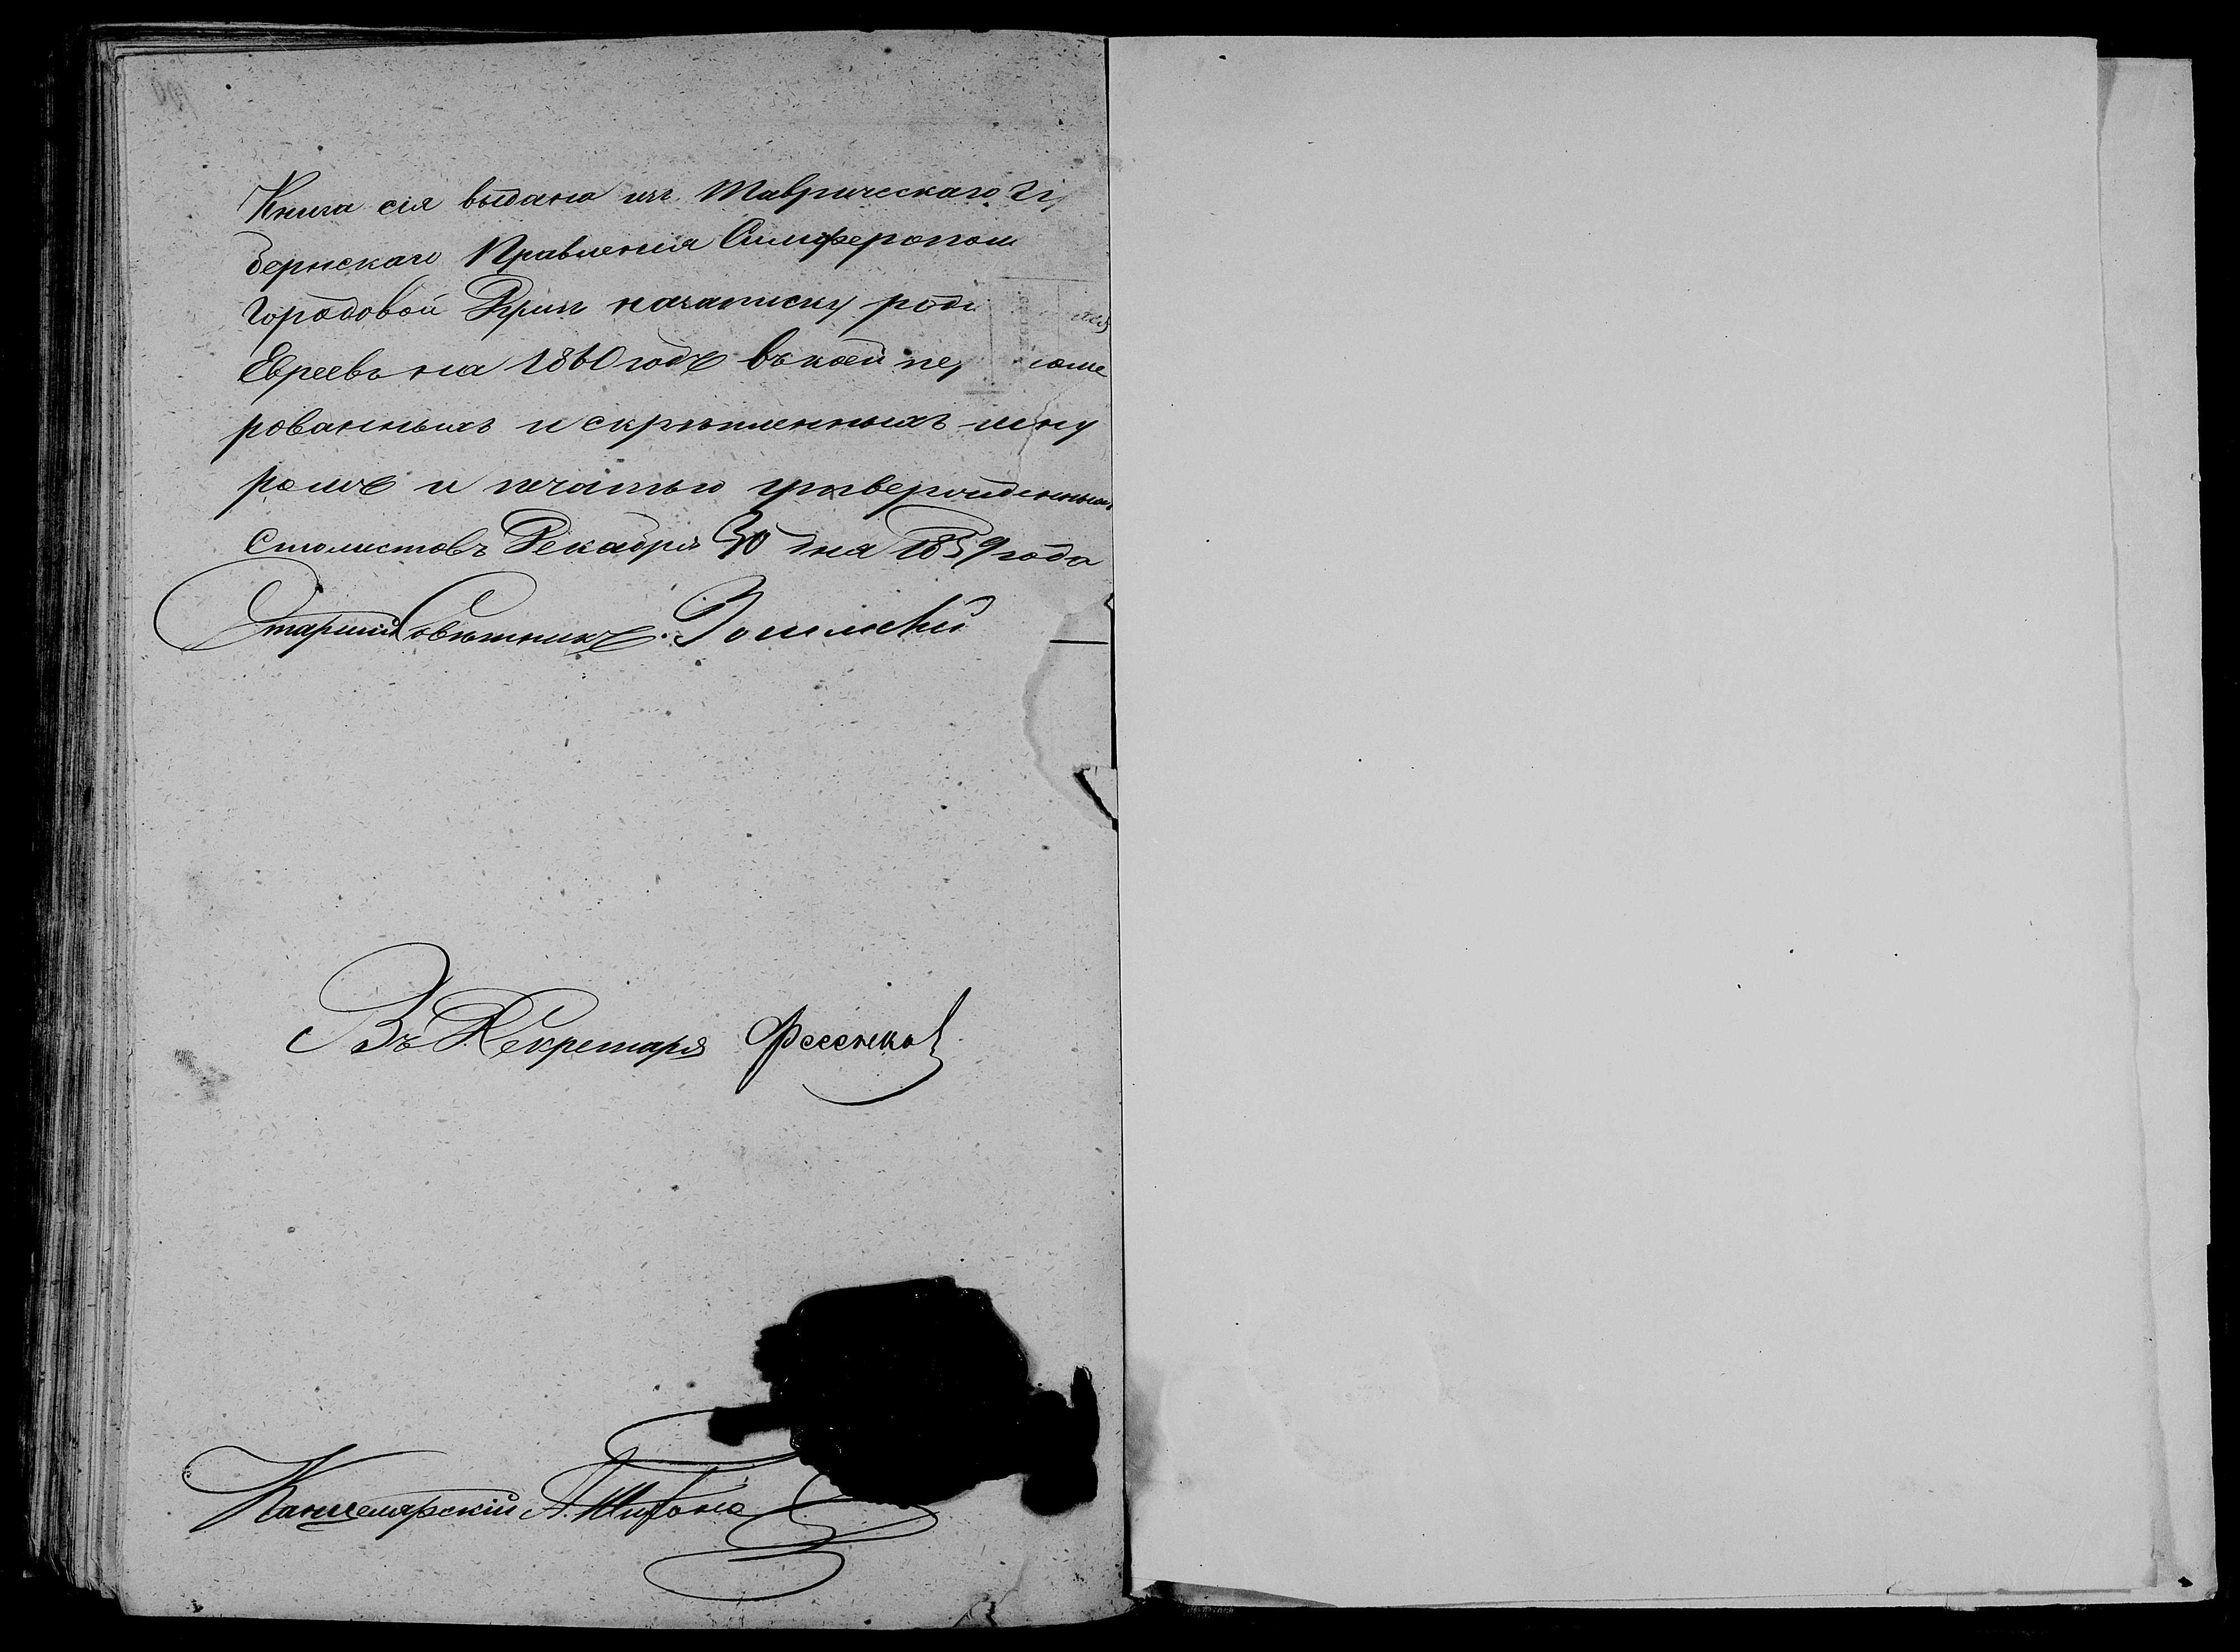 Книга сія выдана изъ Таврическаго Гу
бернскаго Правленія Симферопол
Городовой Думѣ назаписку роди
Евреевъ на 1860 годъ въ коей пе нуме
рованныхъ и скрѣпленныхъ шну
ромъ и печатью утвержденныхъ
Сто листовъ Декабря 30 дня 1859 года
Старшій Совѣтникъ
Въ Д. Секретаря Фесенко
Канцелярскій А.